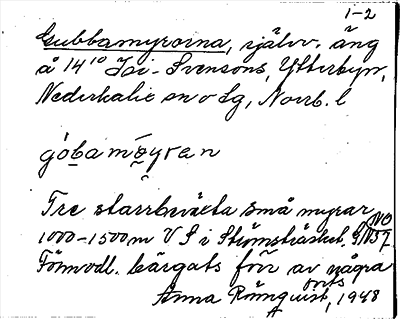 1-2
Gubbamyrorna, självv. äng
å 14¹⁰ Jäi-Svensons, Ytterbyn,
Nederkalix sn o Lg, Norrb. l
góbamýran
Tre starrbeväxta små myrar
1000-1500 m V S i Strömsträsket. NO
Förmodl. bärgats förr av några
Anna Rönnqvist, 1948